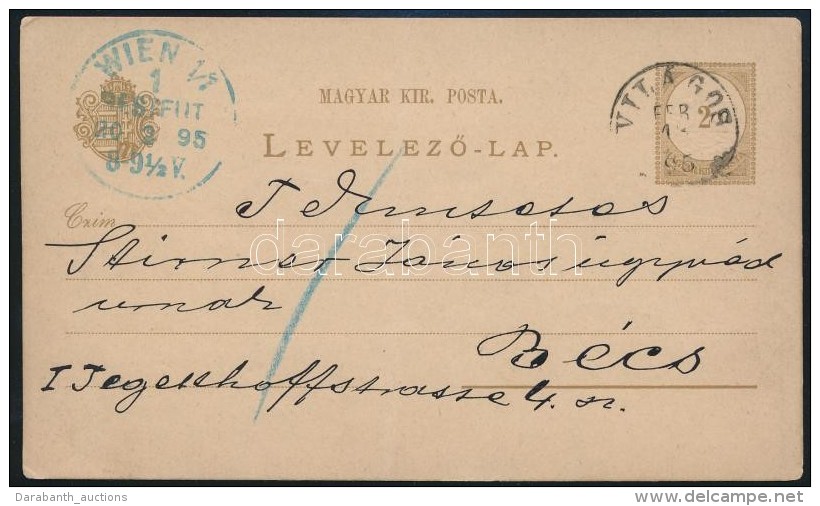 WIEN 1/1
1
BESTELLT
10 2 95
8-9½V.
MAGYAR KIR. POSTA.
LEVELEZŐ-LAP.
VILÁGOS
FEB
95
2
Czim
T Temesetos
Stirner János ügyvéd
urnak
Bécs
I Tegetthoffstrasse 4. sz.
darabanth
Darabanth_auctions
delcampe.net